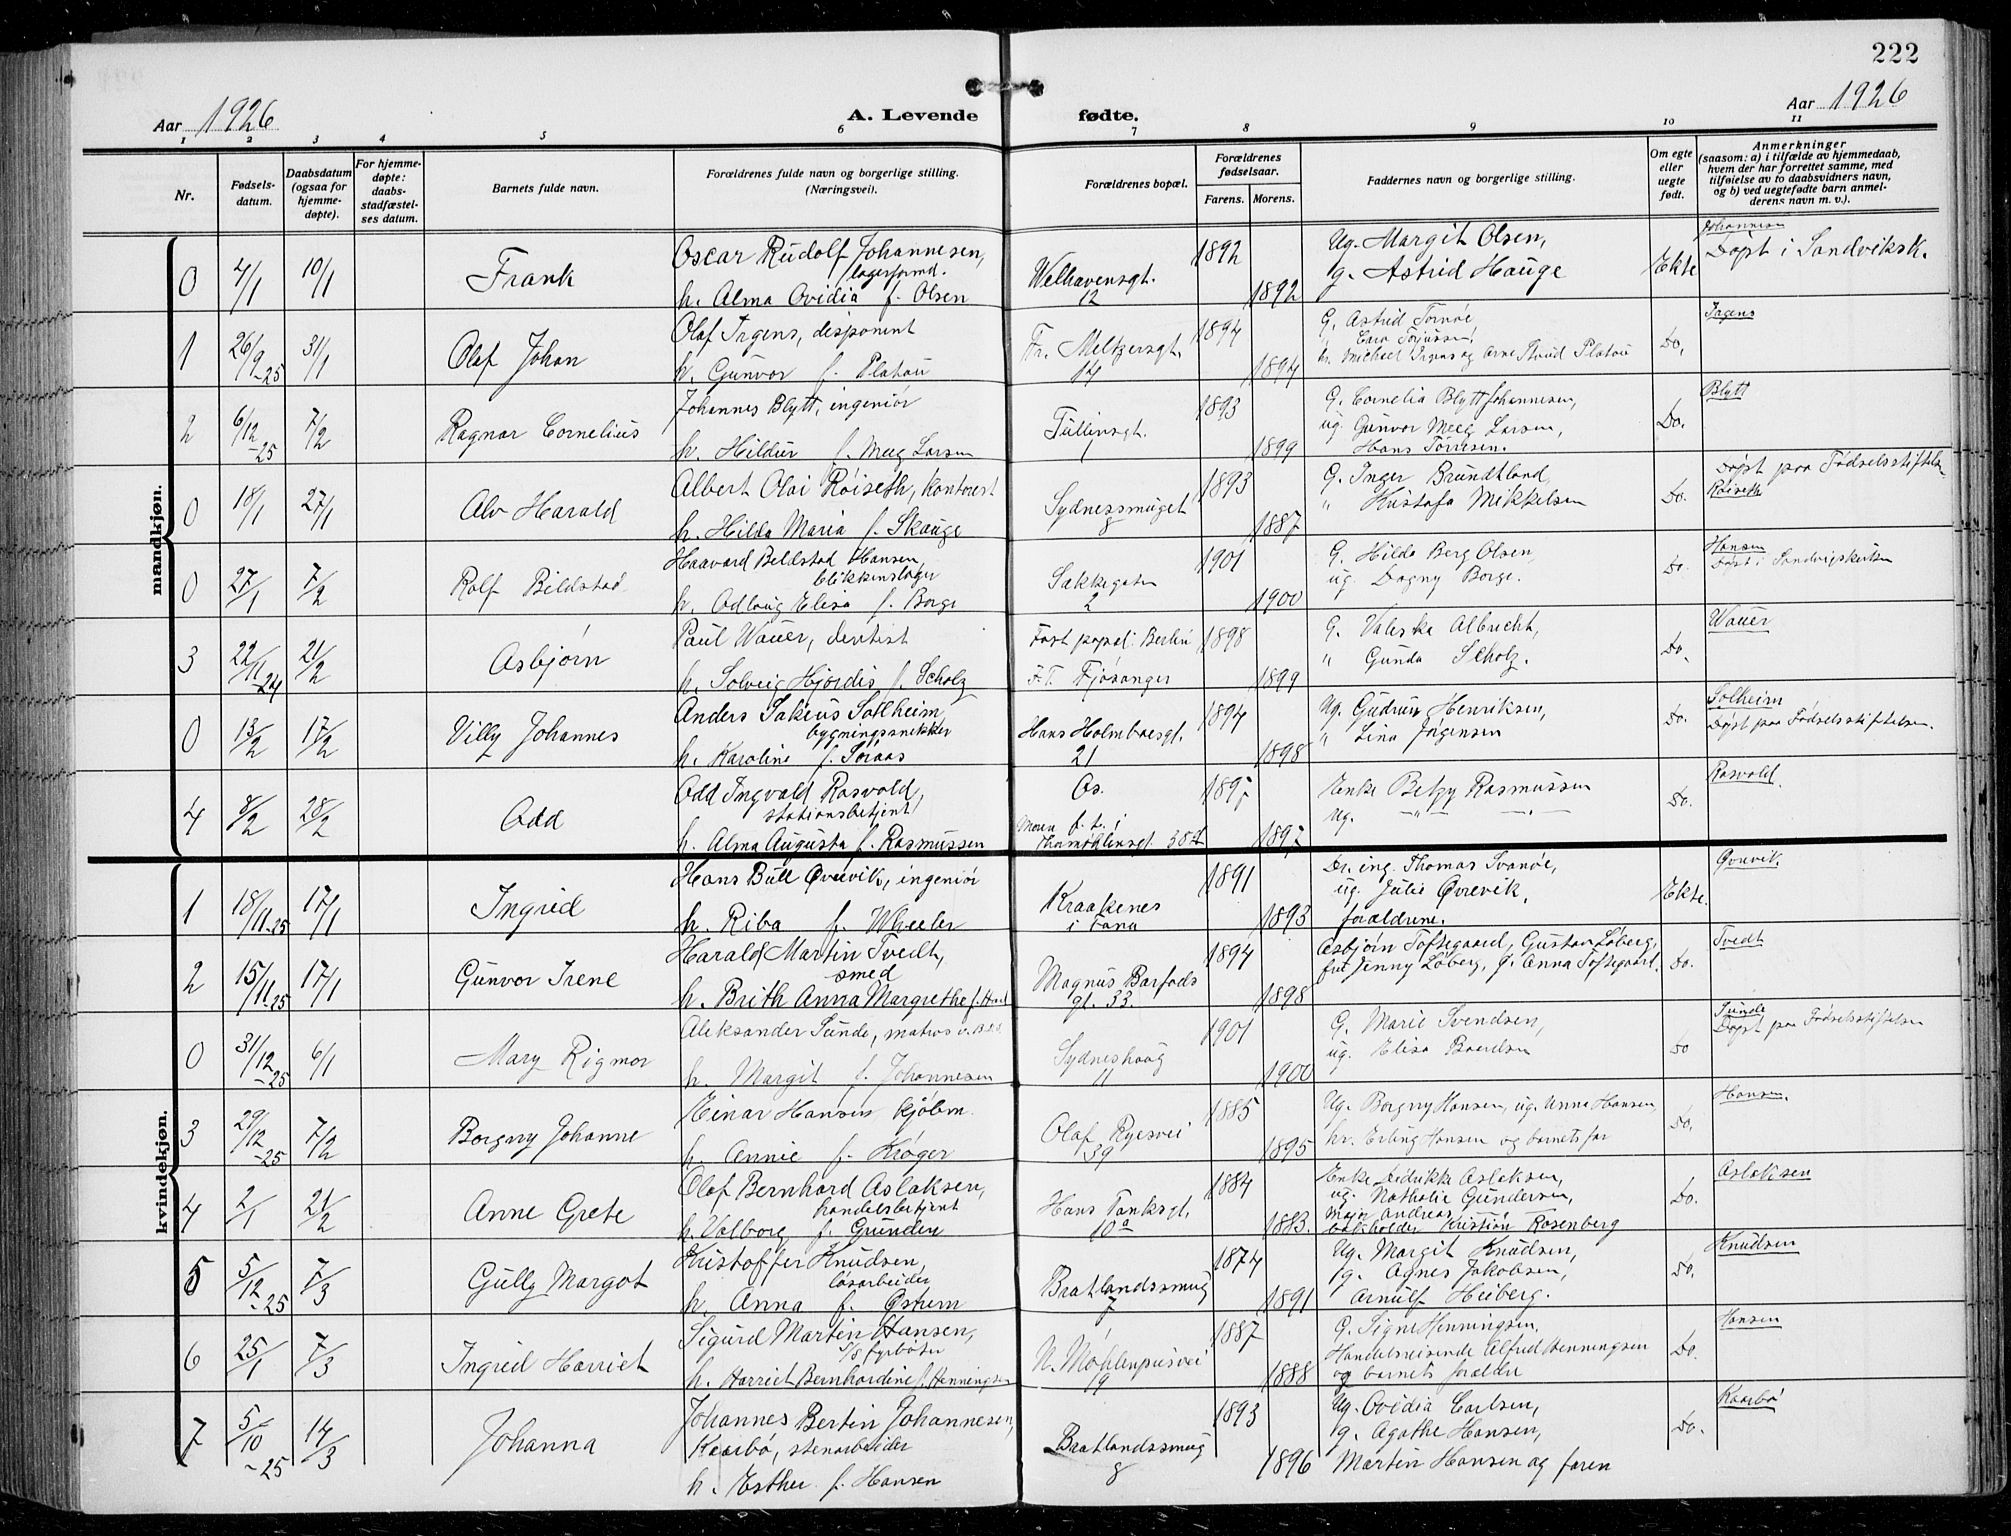 222
Aar 1926
A. Levende fødte.
Aar 1926
1 2 3 4 5 6 7 8 9 10 11
Nr.
Fødsels-
datum.
Daabsdatum
(ogsaa for
hjemme-
døpte).
For hjemme-
døpte:
daabs-
stadfæstel-
ses datum.
Barnets fulde navn.
Forældrenes fulde navn og borgerlige stilling.
(Næringsvei).
Forældrenes bopæl.
Forældrenes
fødselsaar.
Farens. Morens.
Faddernes navn og borgerlige stilling.
Om egte
eller
uegte
født.
Anmerkninger
(saasom: a) i tilfælde av hjemmedaab,
hvem der har forrettet samme, med
tilføielse av to daabsvidners navn,
og b) ved uegtefødte barn anmel-
derens navn m. v.).
mandkjøn.
0 4/1 10/1 Frank
Oscar Rudolf Johannesen,
lagerformd.
h. Alma Ovidia f. Olsen
Welhavensgt.
12
1892
1892
Ug. Margit Olsen,
g. Astrid Hauge
Ekte
Johannesen
Døpt i Sandviksk.
1 26/9-25 31/1 Olaf Johan
Olaf Irgens, disponent
h. Gunvor f. Platou
Fr. Meltzersgt.
14
1894
1894
G. Astrid Tornøe
h. Michael Irgens og Arne Platou
Do.
Irgens
2 6/12-25 7/2 Ragnar Cornelius
Johannes Blytt, ingeniør
h. Hildur f. Meeg Larsen
Tullinsgt.
1
1893
1899
G. Cornelia Blytt Johannesen,
ug. Gunvor Meeg Larsen,
Hans Torresen.
Do.
Blytt
0 18/1 27/1 Alv Harald
Albert Olai Røiseth, kontorist
h. Hilda Maria f. Skauge
Sydnessmuget
8
1893
1887
G. Inger Brundtland,
" Hustofa Mikkelsen
Do.
Døpt paa Fødselsstiftelsen
Røiseth
0 27/1 7/2 Rolf Bildstad
Haavard Beldstad Hansen,
blikkenslager
h. Adlaug Elisa f. Borge
Sækkegaten
2
1901
1900
G. Hilda Berg Olsen,
ug. Dagny Borge.
Do.
Hansen
Døpt i Sandvigskirken
3 22/11-24 21/2 Asbjørn
Paul Wauer, dentist
h. Solveig Hjørdis f. Scholz
Fast bopæl: Berlin
F.T. Fjøsanger
1898
1899
G. Valeska Albrecht,
" Gunda Scholz.
Do.
Wauer
0 13/2 17/2 Villy Johannes
Anders Sakeus Solheim
bygningssnekker
h. Karoline f. Søraas
Hans Holmboesgt.
21
1894
1898
Ug. Gudrun Henriksen,
" Lina Jørgensen
Do.
Solheim
Døpt paa Fødselsstiftelsen.
4 8/2 28/2 Odd
Odd Ingvald Rosvold,
stationsbetjent
h. Alma Augusta f. Rasmussen
Os.
Moren f. t. i
1897
1897
Enke Betzy Rasmussen
Ug. — " —
Do.
Rosvold.
kvindekjøn.
1 18/11-25 17/1 Ingrid
Hans Bull Øvrevik, ingeniør
h. Riba f. Wheeler
Kraakenes
i Fana
1891
1893
Dr. ing. Thomas Svanøe,
ug. Julie Øvrevik,
forældrene.
Ekte.
Øvrevik.
2 15/11-25 17/1 Gunvor Irene
Harald Martin Tvedt,
smed
h. Brith Anna Margrethe f.
Magnus Barfods
gt. 33.
1894
1898
Asbjørn Toftegaard, Gustav Løberg,
fru Jenny Løberg, g. Anna Toftegaard.
Do.
Tvedt
0 31/12-25 6/1 Mary Rigmor
Aleksander Sunde, matros
h. Margit f. Johannesen
Sydneshaug
11
1901
1900
G. Marie Svendsen,
ug. Elisa Baardsen
Do
Sunde
Døpt paa Fødselsstiftelsen
3 29/12-25 7/2 Borgny Johanne
Einar Hansen kjøbm.
h. Annie f. Krøger
Olaf Ryesvei
39
1885
1895
Ug. Borgny Hansen, ug. Anna Hansen,
hr. Erling Hansen og barnets far
Do.
Hansen.
4 2/1 21/2 Anne Grete
Olaf Bernhard Aslaksen,
handelsbetjent
h. Valborg f. Grunden
Hans Tanksgt.
10a
1884
1883.
Enke Fredrikke Aslaksen,
ug. Nathalie Gundersen,
Andreas
Kristian Rosenberg
Do.
Aslaksen
5 5/12-25 7/3 Gully Margot
Kristoffer Knudsen,
løsarbeider
h. Anna f. Østrem
Bratlandssmug
7
1874
1891
Ug. Margit Knudsen,
g. Agnes Jakobsen,
Arnulf Heiberg.
Do.
Knudsen
6 25/1 7/3 Ingrid Harriet
Sigurd Martin Hansen,
S/S fyrbøter
h. Harriet Bernhardine f. Henningsen
N. Møhlenprisvei
19
1887
1888
G. Signe Henningsen,
Handelsreisende Alfred Henningsen
og barnets forældre
Do.
Hansen
7 5/10-25 14/3 Johanna
Johannes Bertin Johannesen
Kaarbø, stenarbeider
h. Esther f. Hansen
Bratlandssmug
8
1893
1896
Ug. Ovidia Carlsen,
g. Agathe Hansen,
Martin Hansen og faren
Do.
Kaarbø